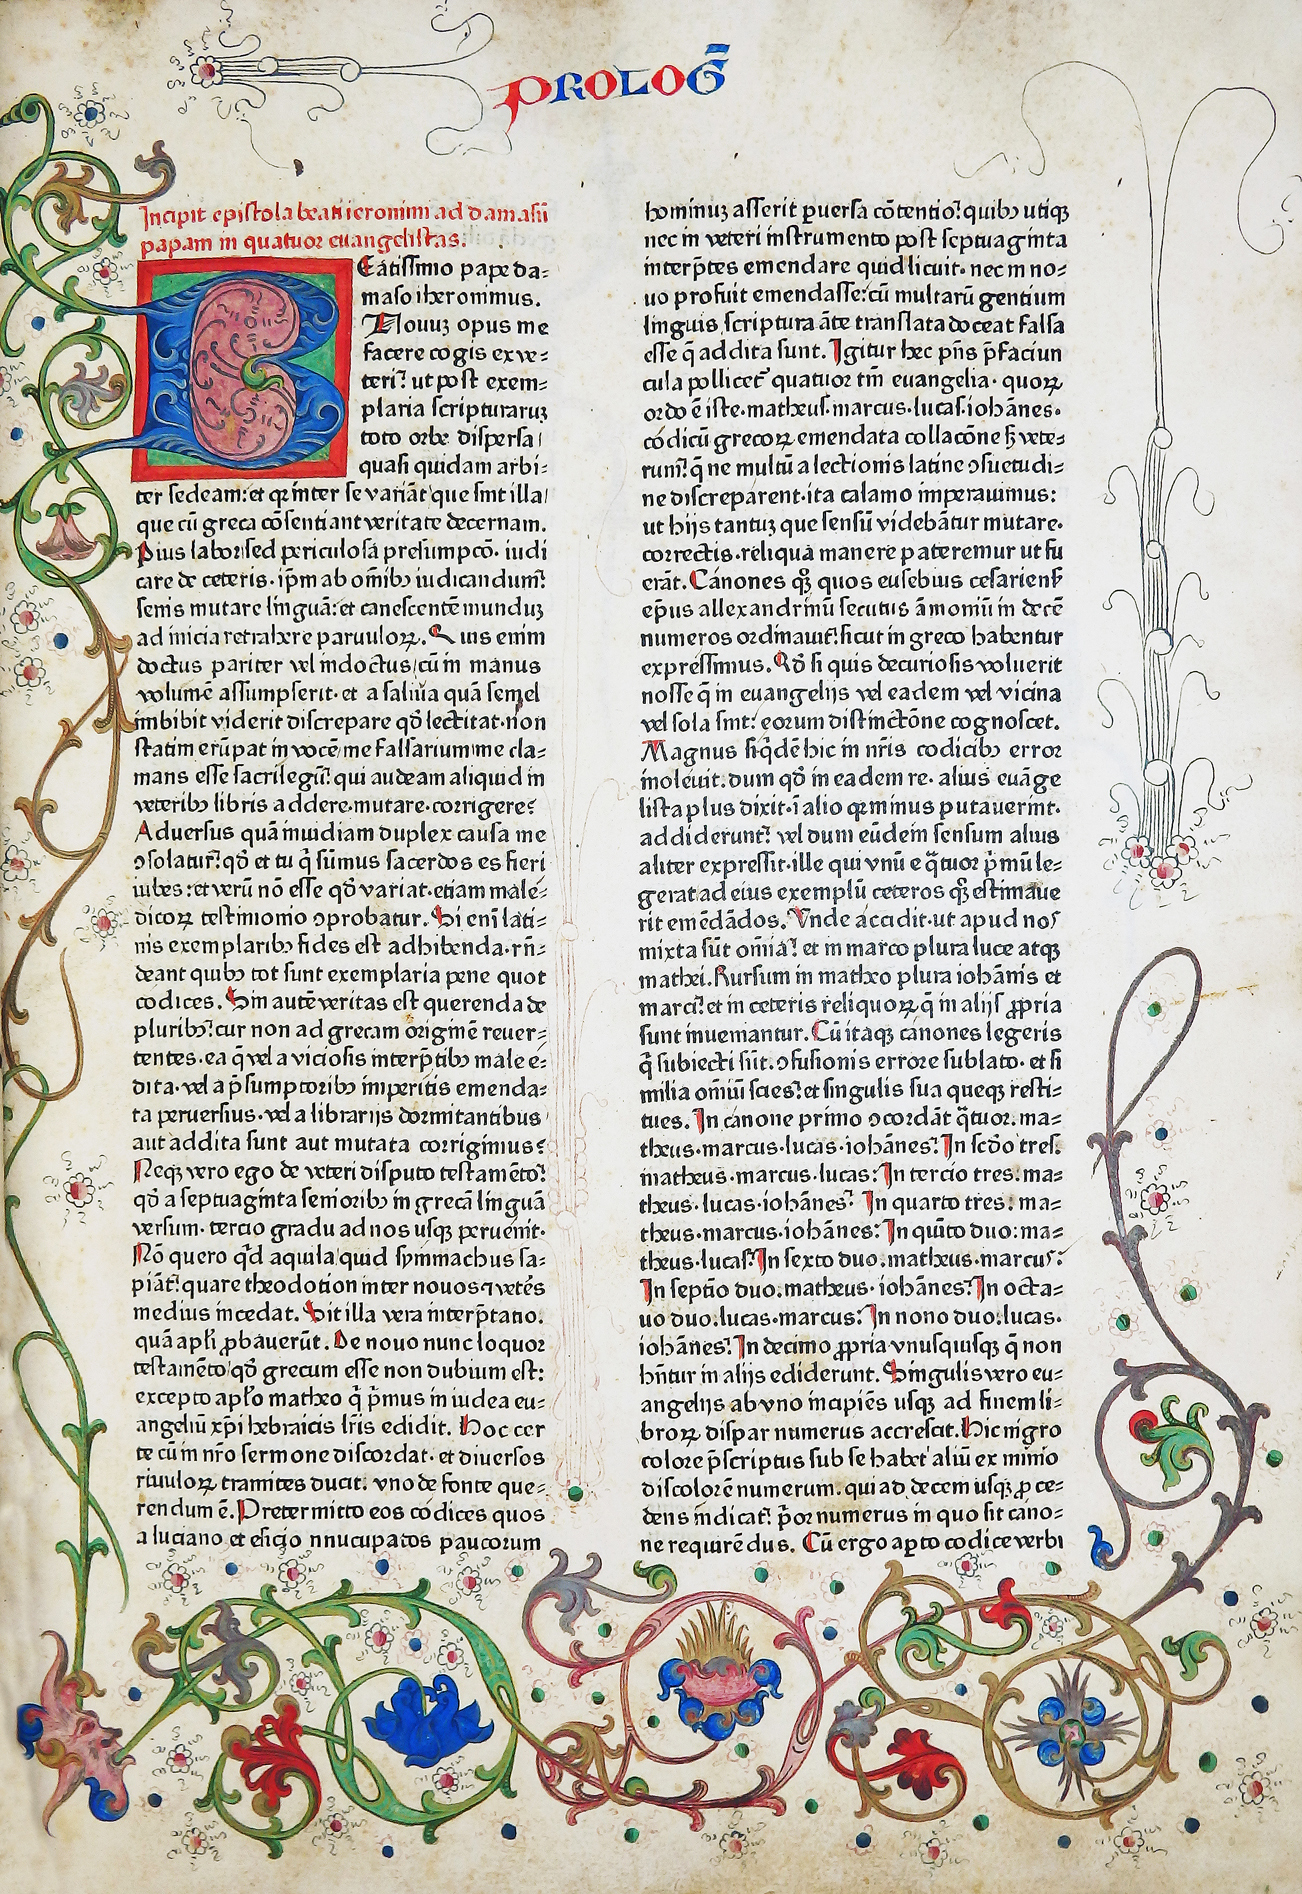 PROLOḠ
Incipit epistola beati ieronimi ad damasū
papam in quatuor euangelistas.
Eatissimo pape da⸗
maso iheronimus.
Nouuꝫ opus me
facere cogis ex ve⸗
teri: ut post exem⸗
plaria scripturaruꝫ
toto orbe dispersa
quasi quidam arbi⸗
ter sedeam: et qꝛ inter se variāt que sint illa
que cū greca cōsentiant veritate decernam.
Pius labor sed periculosa presumpcō· iudi
care de ceteris· ip̄m ab om̄ibꝫ iudicandum:
senis mutare linguā: et canescentē munduꝫ
ad inicia retrahere paruuloꝝ. Quis enim
doctus pariter vel indoctus cū in manus
volumē assumpserit· et a saliua quā semel
imbibit viderit discrepare qd̄ lectitat· non
statim erūpat in vocē me falsarium me cla⸗
mans esse sacrilegū: qui audeam aliquid in
veteribꝫ libris addere· mutare· corrigere?
Aduersus quā inuidiam duplex causa me
ꝯsolatur: qd̄ et tu q̄ sūmus sacerdos es fieri
iubes: et verū nō esse qd̄ variat· etiam male⸗
dicoꝝ testimonio ꝯprobatur. Si eni lati⸗
nis exemplaribꝫ fides est adhibenda· rn̄⸗
deant quibꝫ tot sunt exemplaria pene quot
codices. Sin autē veritas est querenda de
pluribꝫ: cur non ad grecam originē reuer⸗
tentes· ea q̄ vel a viciosis interp̄tibꝫ male e⸗
dita· vel a p̄sumptoribꝫ imperitis emenda⸗
ta peruersius· vel a librarijs dormitantibus
aut addita sunt aut mutata corrigimus?
Neqꝫ vero ego de veteri disputo testamēto:
qd̄ a septuaginta senioribꝫ in grecā linguā
versum· tercio gradu ad nos usqꝫ peruenit·
Nō quero qͥd aquila quid symmachus sa⸗
piāt: quare theodotion inter nouos ⁊ vetēs
medius incedat. Sit illa vera interp̄tatio.
quā apl̄i ꝓbauerūt. De nouo nunc loquor
testamēto qd̄ grecum esse non dubium est:
excepto apl̄o matheo q̄ p̄mus in iudea eu⸗
angeliū xp̄i hebraicis lr̄is edidit. Hoc cer
te cū in nr̄o sermone discordat· et diuersos
riuuloꝝ tramites ducit: vno de fonte que⸗
rendum ē. Pretermitto eos codices quos
a luciano et esicio nnucupatos paucorum
hominuꝫ asserit ꝑuersa cōtentio: quibꝫ utiqꝫ
nec in veteri instrumento post septuaginta
interp̄tes emendare quid licuit· nec in no⸗
uo profuit emendasse: cū multarū gentium
linguis scriptura āte translata doceat falsa
esse q̄ addita sunt. Igitur hec pn̄s p̄faciun
cula pollicet᷑ quatuor tm̄ euangelia· quoꝝ
ordo ē iste· matheus· marcus· lucas· iohānes·
codicū grecoꝝ emendata collacōne ꞩ vete⸗
rum: q̄ ne multū a lectionis latine ꝯsuetudi⸗
ne discreparent· ita calamo imperauimus:
ut hijs tantuꝫ que sensū videbātur mutare·
correctis· reliqua manere pateremur ut fu
erāt. Canones qꝫ quos eusebius cesariens̄
ep̄us allexandrinū secutus āmoniū in decē
numeros ordinauit: sicut in greco habentur
expressimus. Qd̄ si quis de curiosis voluerit
nosse q̄ in euangelijs vel eadem vel vicina
vel sola sint: eorum distinctōne cognoscet.
Magnus siqͥdē hic in nr̄is codicibꝫ error
inoleuit. dum qd̄ in eadem re· alius euāge
lista plus dixit· ī alio qꝛ minus putauerint·
addiderunt: vel dum eūdem sensum alius
aliter expressit· ille qui vnū e q̄tuor p̄mū le⸗
gerat ad eius exemplū ceteros qꝫ estimaue
rit emēdādos. Vnde accidit· ut apud nos
mixta sūt om̄ia: et in marco plura luce atqꝫ
mathei. Rursum in matheo plura iohānis et
marci: et in ceteris reliquoꝝ q̄ in alijs ꝓpria
sunt inueniantur. Cū itaqꝫ canones legeris
q̄ subiecti sūt· ꝯfusionis errore sublato· et si
milia om̄iū scies: et singulis sua queqꝫ resti⸗
tues. In canone primo ꝯcordāt q̄tuor. ma⸗
theus· marcus· lucas· iohānes: In scd̄o tres:
matheus· marcus· lucas: In tercio tres. ma⸗
theus· lucas· iohānes: In quarto tres: ma⸗
theus· marcus· iohānes: In quīto duo: ma⸗
theus· lucas: In sexto duo. matheus· marcus:
In septīo duo. matheus· iohānes: In octa⸗
uo duo. lucas· marcus: In nono duo. lucas·
iohānes: In decimo ꝓpria vnusquisqꝫ q̄ non
hn̄tur in alijs ediderunt. Singulis vero eu⸗
angelijs ab vno incipiēs usqꝫ ad finem li⸗
broꝝ dispar numerus accrescit. Hic nigro
colore p̄scriptus sub se habet aliū ex minio
discolorē numerum. qui ad decem usqꝫ ꝓce⸗
dens indicat: p̄or numerus in quo sit cano⸗
ne requirēdus. Cū ergo aꝑto codice verbi